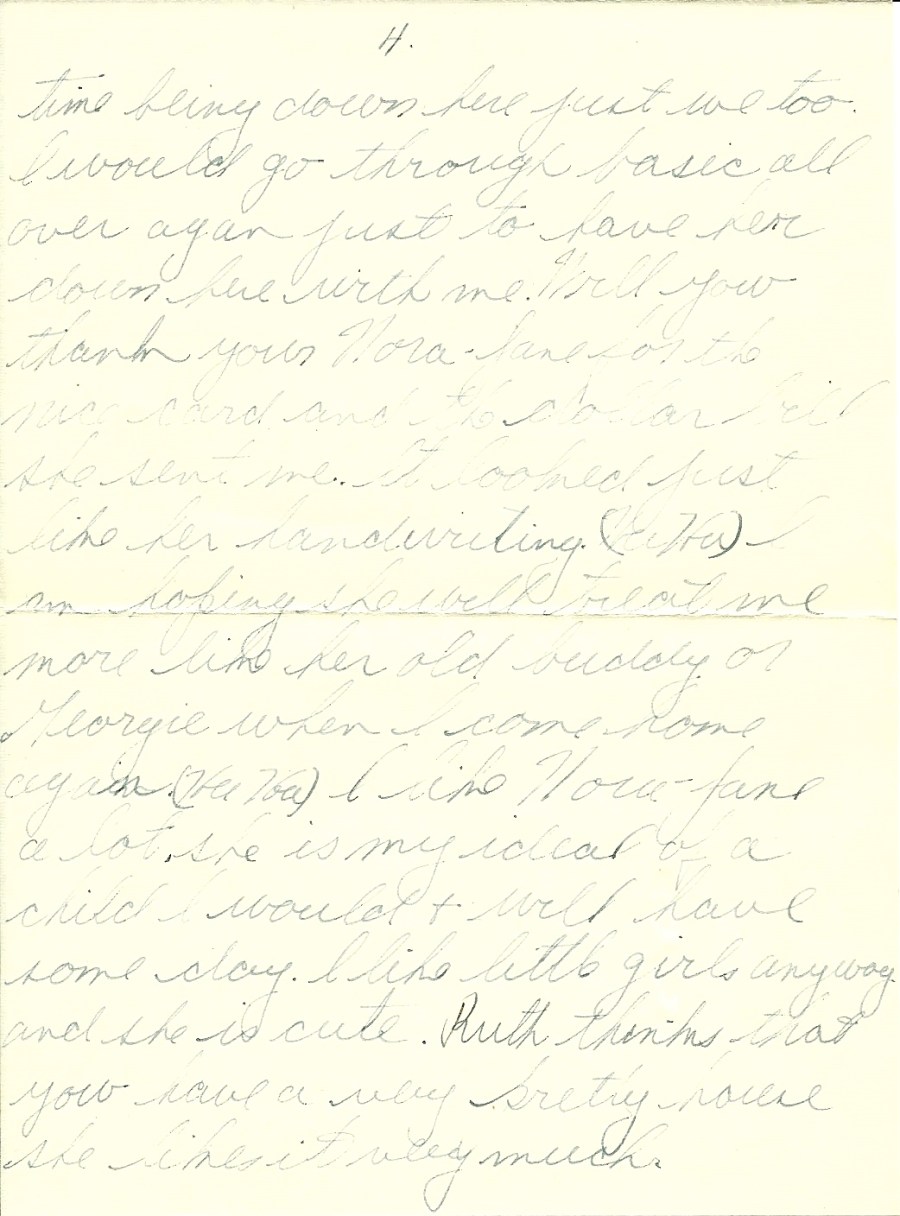 4.
time being down here just we too.
I would go through basic all
over again just to have her
down here with me. Will you
thank your Nora-Jane for the
nice card and the dollar bill
she sent me. It looked just
like her handwriting. (Ha Ha) I
am hoping she will treat me
more like her old buddy or
Georgie when I come home
again. (Ha Ha) I like Nora-Jane
a lot, she is my ideal of a
child I would + will have
some day. I like little girls anyway
and she is cute. Ruth thinks that
you have a very pretty house
she likes it very much.